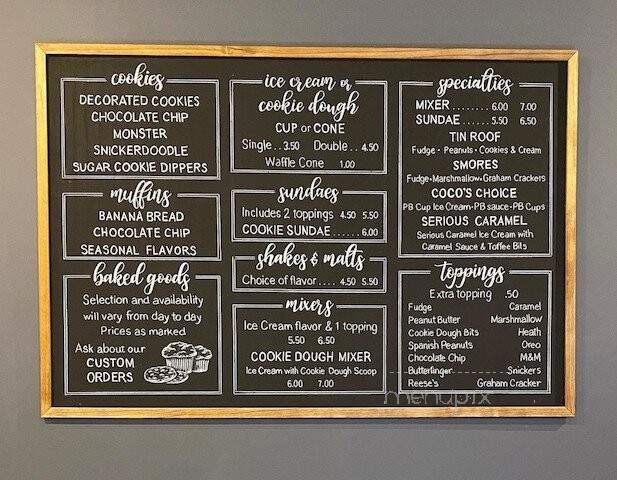 cookies
DECORATED COOKIES
CHOCOLATE CHIP
MONSTER
SNICKERDOODLE
SUGAR COOKIE DIPPERS
muffins
BANANA BREAD
CHOCOLATE CHIP
SEASONAL FLAVORS
baked goods
Selection and availability
will vary from day to day
Prices as marked
Ask about our
CUSTOM
ORDERS
ice cream or
cookie dough
CUP or CONE
Single . . 3.50 Double . . 4.50
Waffle Cone 1.00
sundaes
Includes 2 toppings 4.50 5.50
COOKIE SUNDAE . . . . . . 6.00
shakes & malts
Choice of flavor . . . . 4.50 5.50
mixers
Ice Cream flavor & 1 topping
5.50 6.50
COOKIE DOUGH MIXER
Ice Cream with Cookie Dough Scoop
6.00 7.00
specialties
MIXER . . . . . . . . 6.00 7.00
SUNDAE . . . . . . 5.50 6.50
TIN ROOF
Fudge • Peanuts • Cookies & Cream
SMORES
Fudge•Marshmallow•Graham Crackers
COCO'S CHOICE
PB Cup Ice Cream•PB sauce•PB Cups
SERIOUS CARAMEL
Serious Caramel Ice Cream with
Caramel Sauce & Toffee Bits
toppings
Extra topping .50
Fudge Caramel
Peanut Butter Marshmallow
Cookie Dough Bits Heath
Spanish Peanuts Oreo
Chocolate Chip M&M
Butterfinger Snickers
Reese's Graham Cracker
menupix